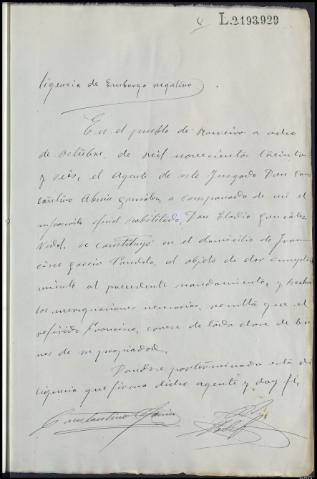 L.2193.929
ligencia de Embargo negativo
En el pueblo de a ocho
de octubre, de mil novecientos treinta
y seis, el Agente de este Juzgado Don Cons
tantino Abuin González acompañado de mi el
infrascrito oficial habilitado, Don Eladio González
Vidal, se constituyó en el domicilio de Fran
cisco García al objeto de dar cumpli
miento al precedente mandamiento, y hechas
las necesarias, resulta que el
referido Francisco, carece de toda clase de bie
nes de su propiedad.
Dandose por terminada esta di
ligencia que firma dicho agente y doy fe,
Constantino Abuin